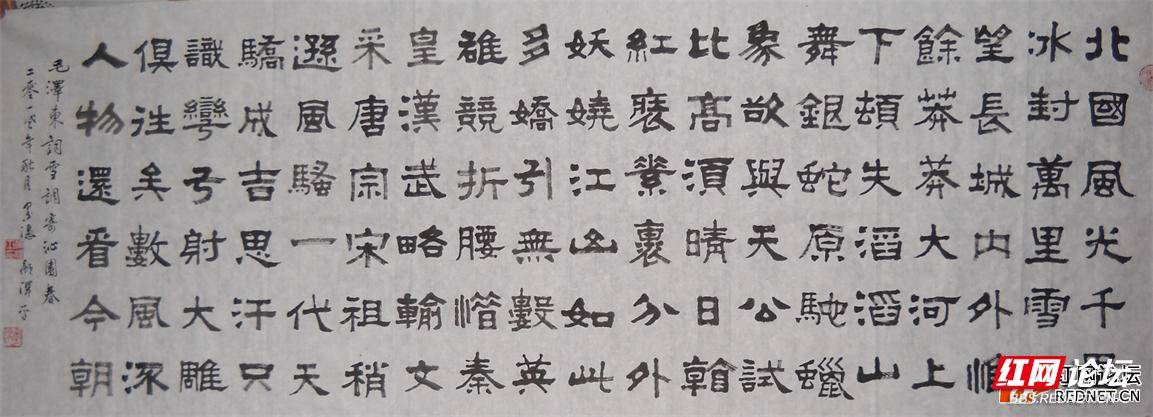 北國風光千里
冰封萬里雪
望長城內外惟
餘莽莽大河上
下頓失滔滔山
舞銀蛇原馳蠟
象欲與天公試
比高須晴日
紅裝素裹分外
妖嬈江山如此
多嬌引無數英
雄競折腰惜秦
皇漢武略輸文
采唐宗宋祖稍
遜風騷一代天
驕成吉思汗只
識彎弓射大雕
俱往矣數風流
人物還看今朝
毛澤東詞雪調寄沁園春
二零一年秋月
红网论坛
BBS.REDNET.CN
红网论坛
REDNET.CN